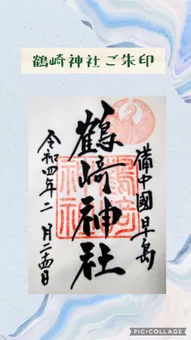 鶴崎神社ご朱印
備中國早島
鶴崎神社
令和四年二月二十四日
PIC•COLLAGE